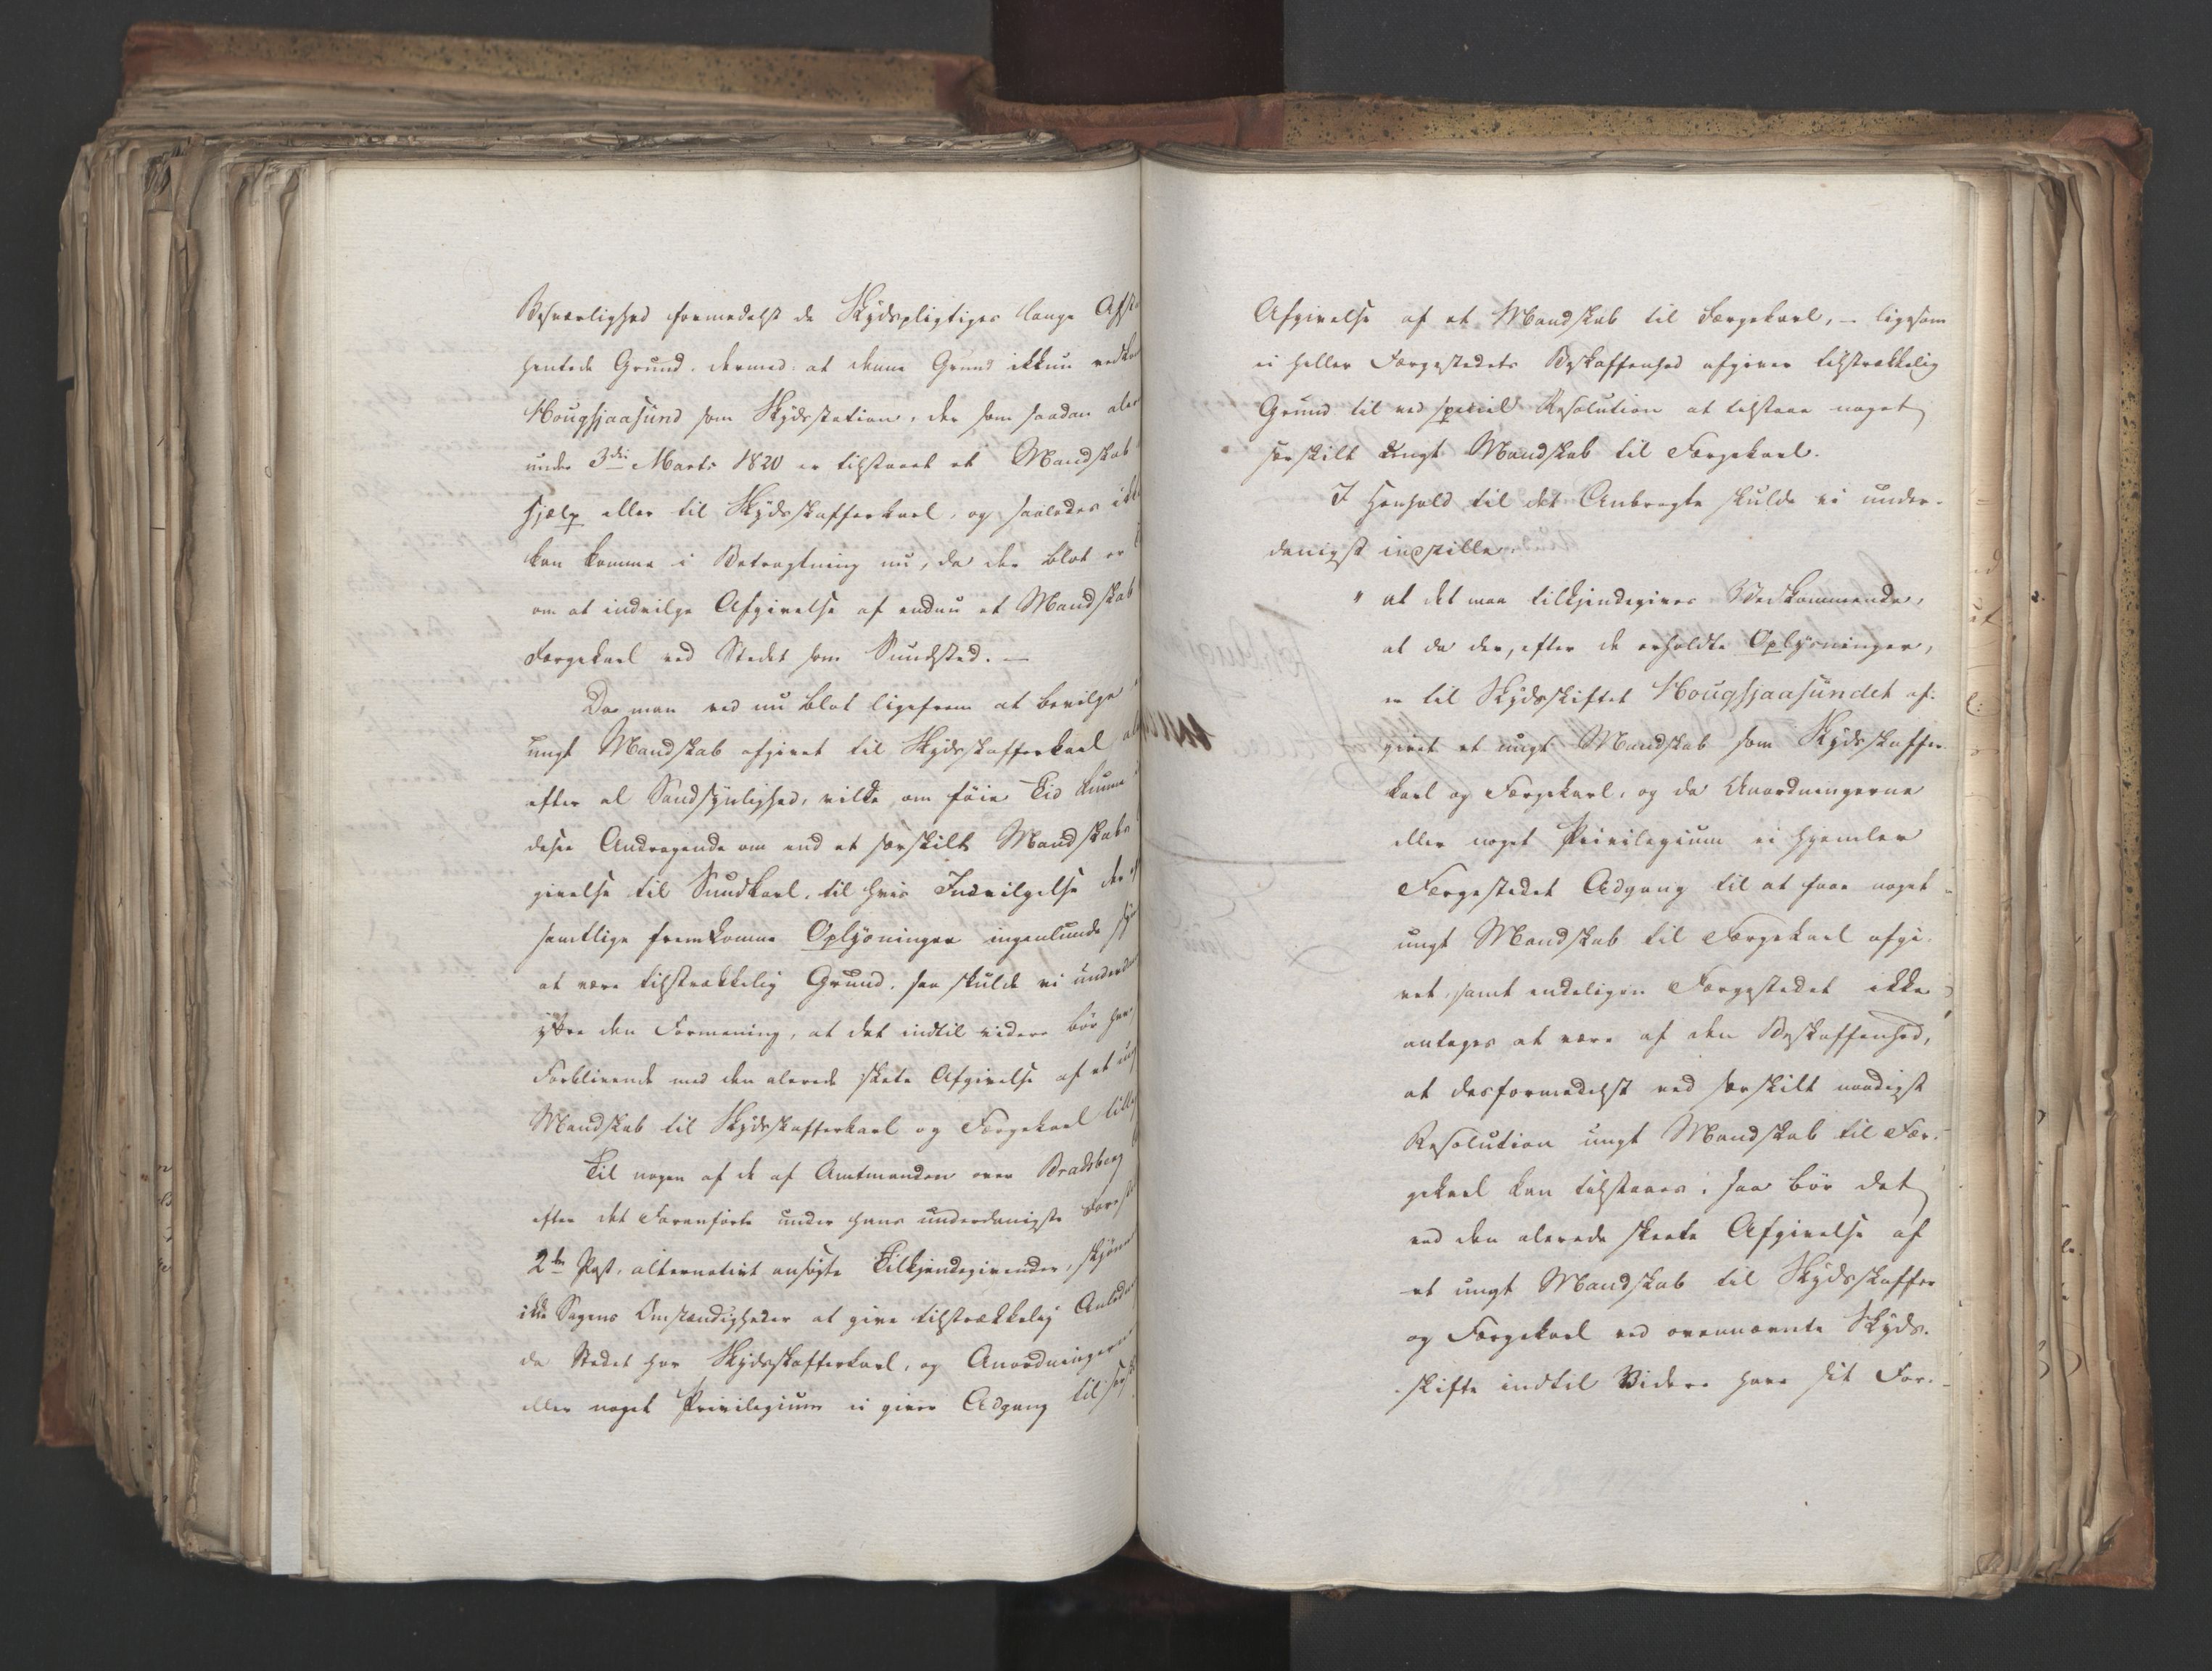 Besværlighed formedelst de Skydspligtiges lange Afst
hentede Grund, dermed: at denne Grund ikkun vedko
Hougsjaasund som Skydsstation, der som saadan aler
under 3die Marts 1820 er tilstaaet et Mandskab
Hjælp eller til Skydsskafferkarl, og saaledes ikk
kan komme i Betragtning nu, da der blot er
om at indvilge Afgivelse af endnu et Mandskab
Færgekarl ved Stedet som Sundsted. —
Da man ved nu blot ligefrem at bevilge
ungt Mandskab afgivet til Skydsskafferkarl al
efter al Sandsynlighed, vilde om føie Tid kunne
disse Andragende om end et særskilt Mandskabs
givelse til Sundkarl, til hvis Indvilgelse der ef
samtlige fremkomne Oplysninger ingenlunde syn
at være tilstrækkelig Grund, saa skulde vi underda
yttre den Formening, at det indtil videre bør hav
Forblivende med den alerede skete Afgivelse af et ung
Mandskab til Skydsskafferkarl og Færgekarl tillig
Til nogen af de af Amtmanden over Bradsberg
efter det Foranførte under hans underdanigste Forest
2den Post, alternativt ansøgte Tilkjendegivender, skjønne
ikke Sagens Omstændigheder at give tilstrækkelig Anledn
da Stedet har Skydsskafferkarl, og Anordningerne
eller noget Privilegium ei giver Adgang til sær
Afgivelse af et Mandskab til Færgekarl, – ligesom
ei heller Færgestedets Beskaffenhed afgiver tilstrækkelig
Grund til ved speciel Resolution at tilstaae noget
særskilt ungt Mandskab til Færgekarl.
I Henhold til det Anbragte skulde vi under-
danigst indstille:
" at det maa tilkjendegives Vedkommende,
at da der, efter de erholdte Oplysninger,
er til Skydsskiftet Hougsjaasundet af-
givet et ungt Mandskab som Skydsskaffer-
karl og Færgekarl, og da Anordningerne
eller noget Privilegium ei hjemler
Færgestedet Adgang til at faae noget
ungt Mandskab til Færgekarl afgi-
vet, samt endeligen Færgestedet ikke
antages at være af den Beskaffenhed,
at desformedelst ved særskilt naadigst
Resolution ungt Mandskab til Fær-
gekarl kan tilstaaes; saa bør det
ved den alerede skeete Afgivelse af
et ungt Mandskab til Skydsskaffer
og Færgekarl ved ovennævnte Skyds-
skifte indtil Videre have sit For-